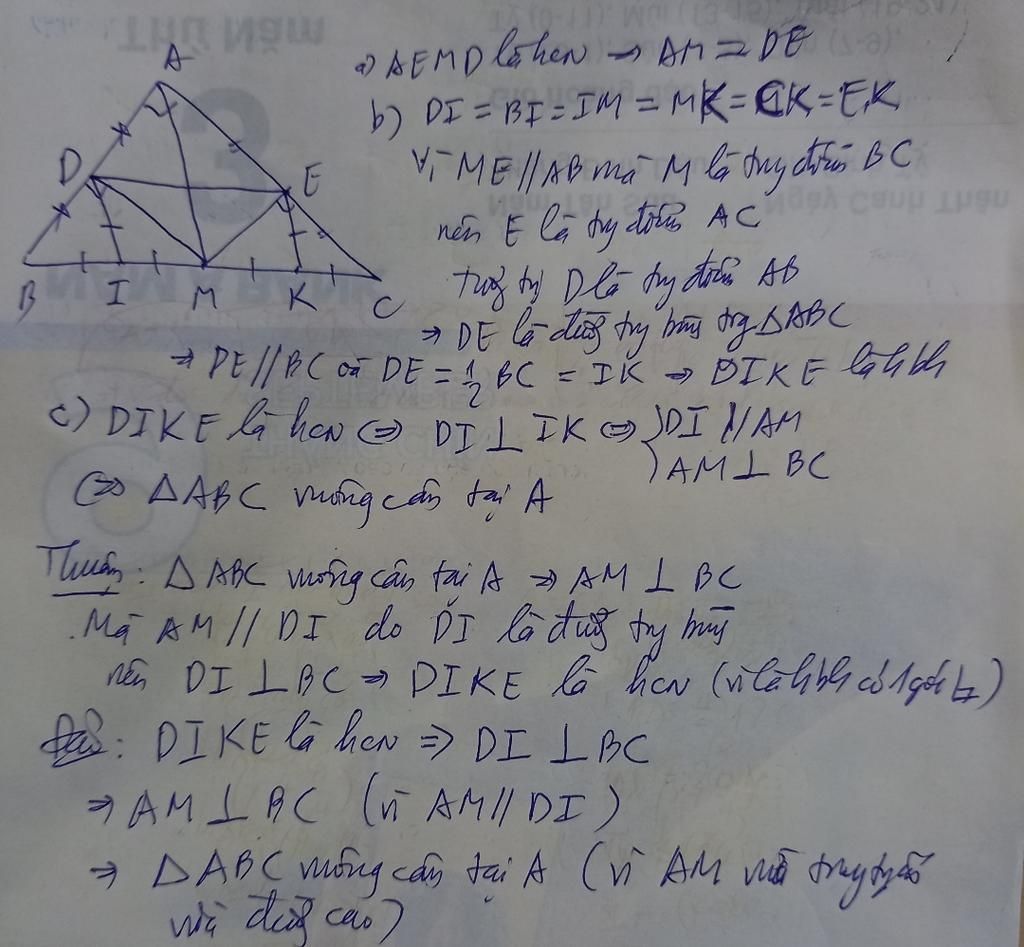 A
D
E
B I M K C
a) AEMD là hcn → AM = DE
b) DI = BI = IM = MK = CK = EK
Vì ME // AB mà M là trg điểm BC
nên E là trg điểm AC
tương tự D là trg điểm AB
⇒ DE là đường trg bình trg △ABC
⇒ DE // BC và DE = 1/2 BC = IK → DIKE là hbh
c) DIKE là hcn ⇔ DI ⊥ IK ⇔ DI // AM
AM ⊥ BC
⇔ △ABC vuông cân tại A
Thuận: △ABC vuông cân tại A ⇒ AM ⊥ BC
Mà AM // DI do DI là đường trg bình
nên DI ⊥ BC ⇒ DIKE là hcn (vì là hbh có 1 góc)
Đảo: DIKE là hcn ⇒ DI ⊥ BC
⇒ AM ⊥ BC (vì AM // DI)
⇒ △ABC vuông cân tại A (vì AM vừa trung tuyến
vừa đường cao)